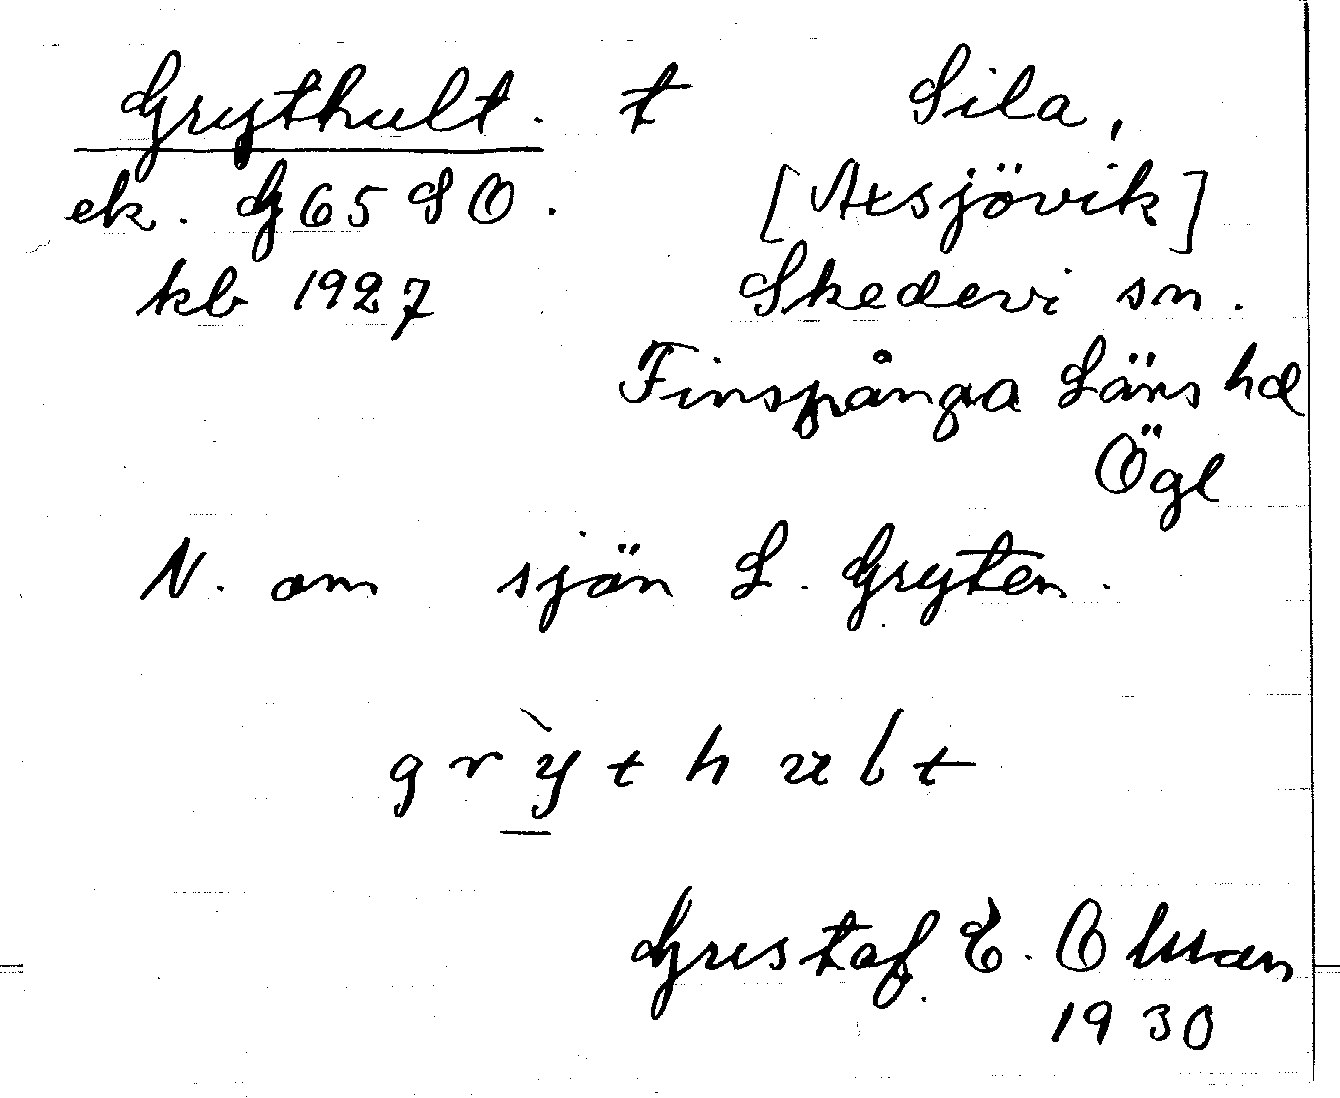 Grythult. t Sila,
ek. G 65 S O. [Axsjövik]
kb 1927 Skedevi sn.
Finspånga Läns hd
Ögl
N. om sjön L. Gryten.
grỳthult
Gustaf E. Olman
1930